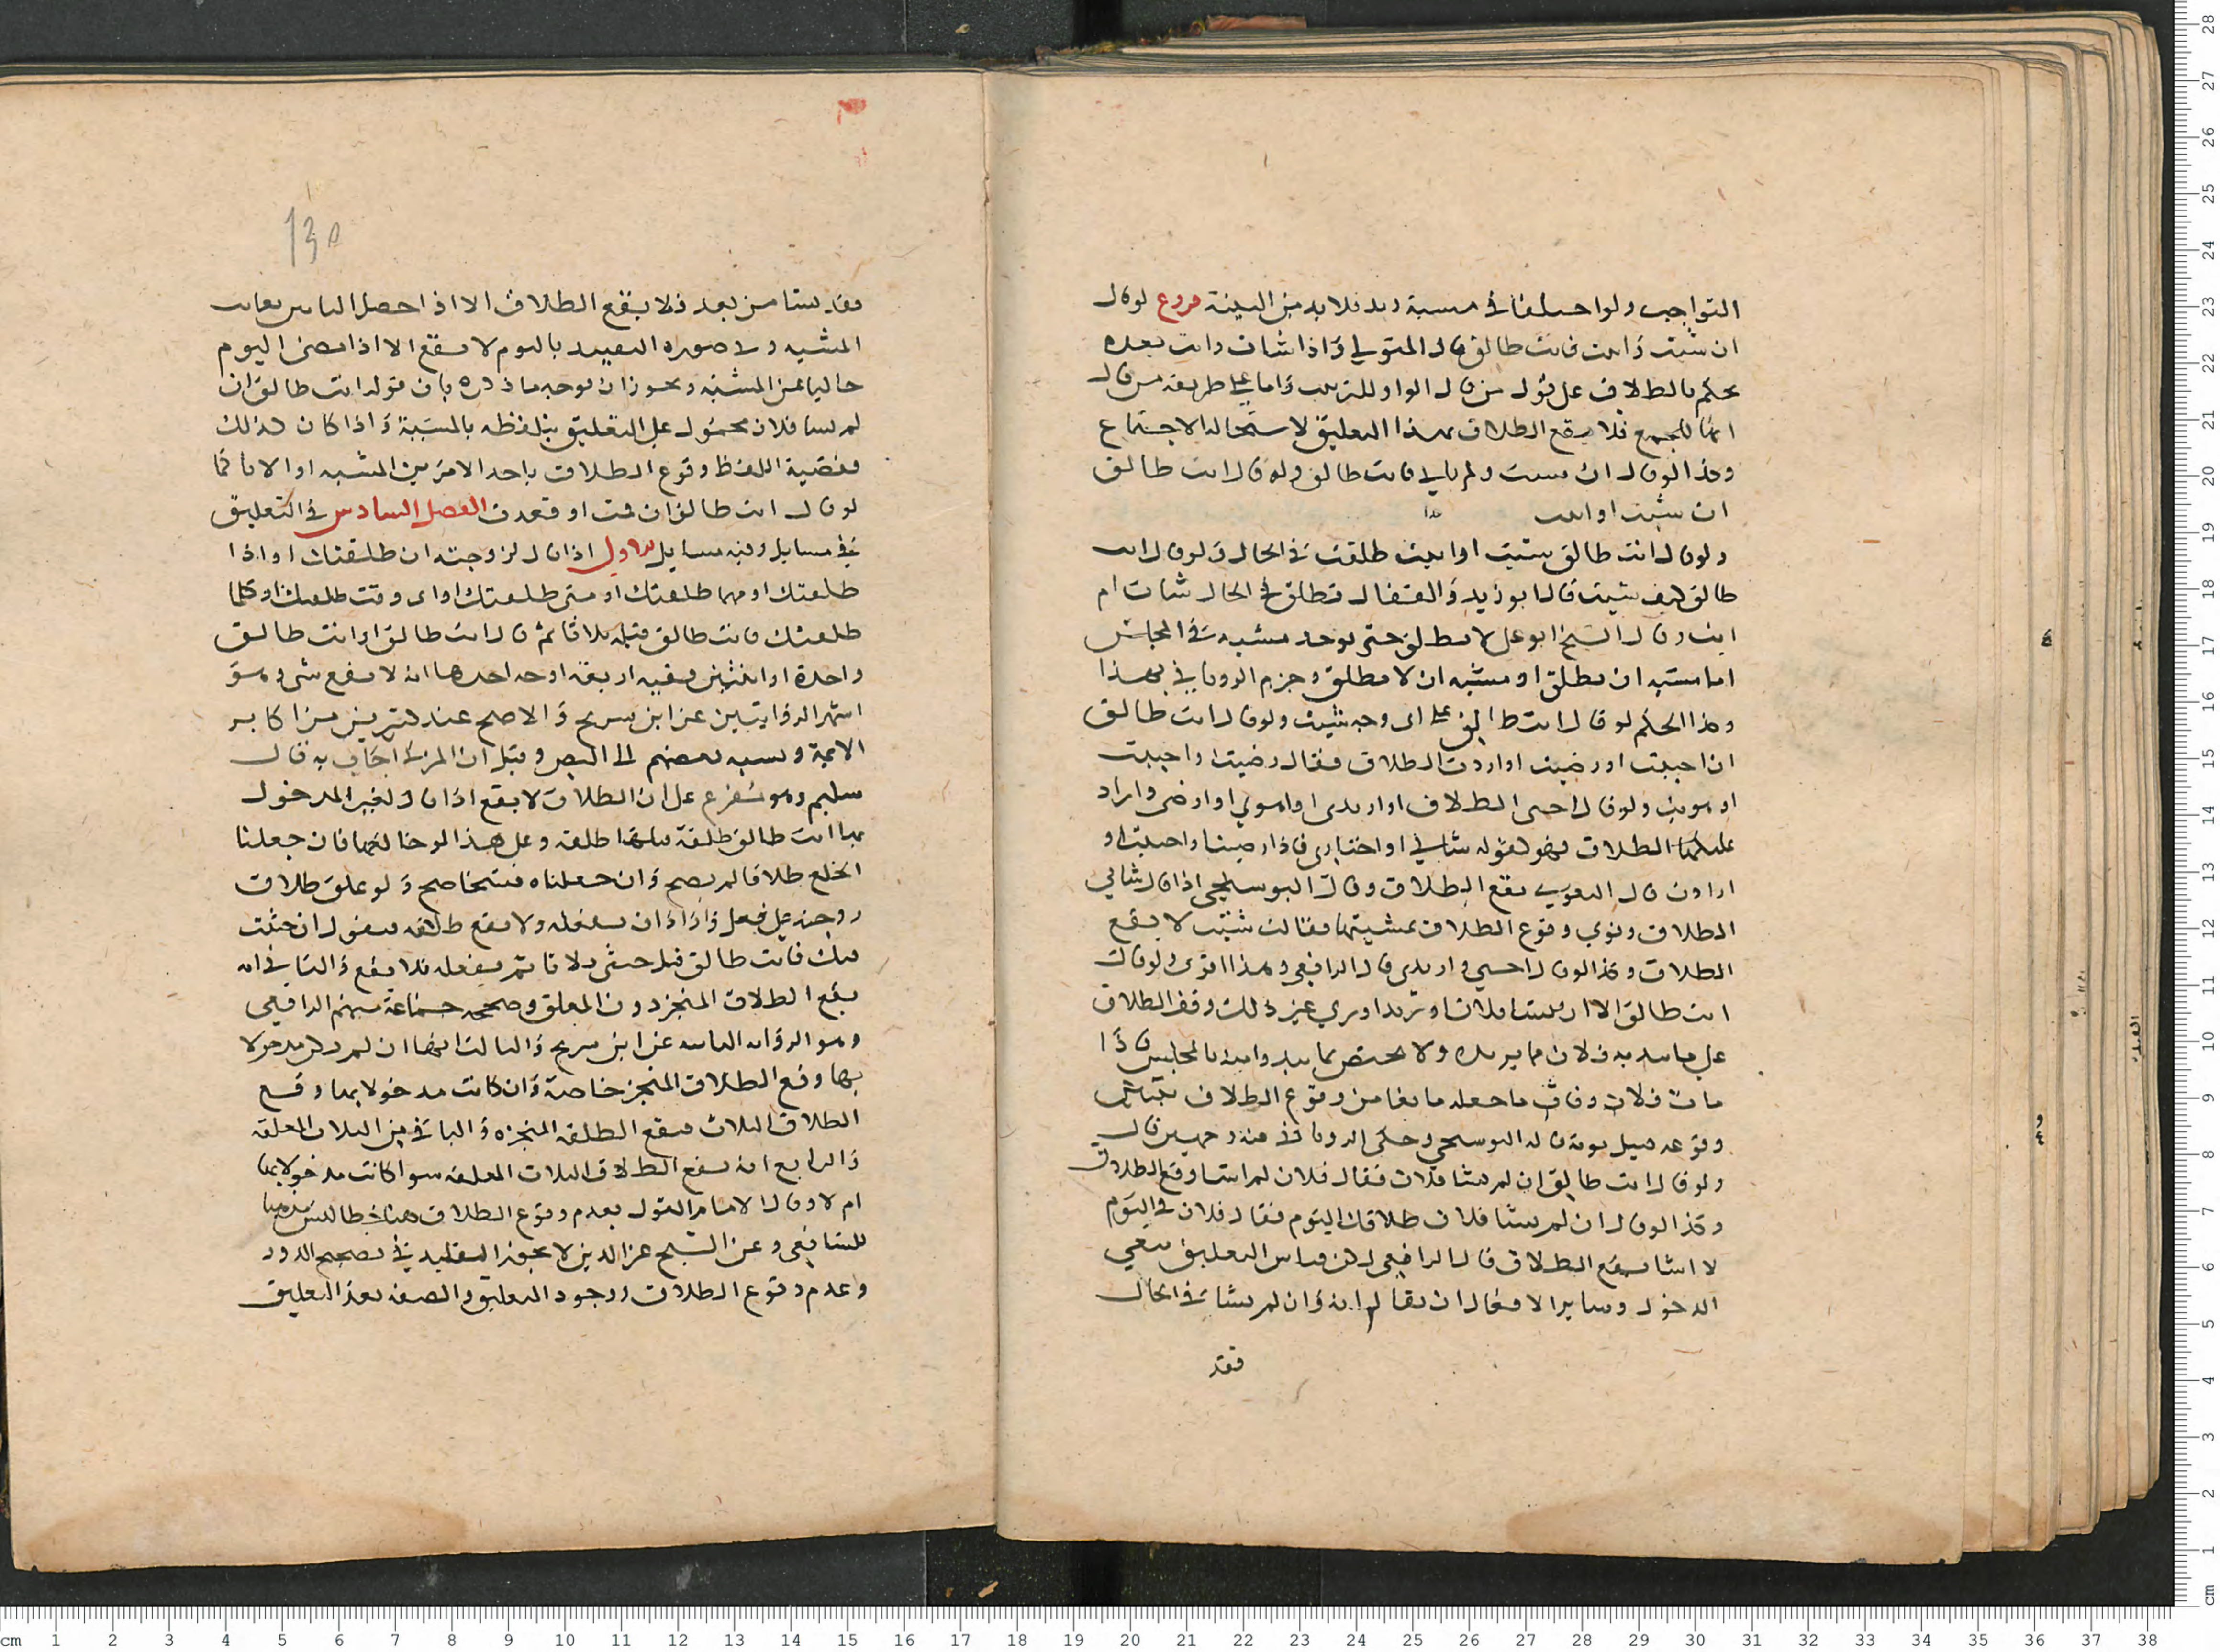 التواجب ولو اختلفا في مشيية زيد فلا بد من البينة فروع لو قال
ان شئت وابيت فانت طالق قال المتولي واذا شات وابت بعده
يحكم بالطلاق على قول من قال الواو للترتيب واما على طريقه من قال
انها للجمع فلا يقع الطلاق بهذا التعليق لاستحاله الاجتماع
وكذا لو قال ان شيت ولم تابي فانت طالق ولو قال انت طالق
ان شيت او ابيت
ولو قال انت طالق شيت او ابيت طلقت في الحال ولو قال انت
طالق كيف شيت قال ابو زيد والقفال تطلق في الحال شات ام
ابت وقال الشيخ ابو علي لا تطلق حتى توجد مشيه في المجلس
اما مشيه ان تطلق او مشيه ان لا تطلق وجزم الروياني بهذا
وكذا الحكم لو قال انت طالق على اى وجه شيت ولو قال انت طالق
ان احببت او رضيت او اردت الطلاق فقال رضيت او احببت
او هويت ولو قال احبى الطلاق او اريدى او اهوي او ارضى واراد
عليكها الطلاق فهو كقوله شاي او اختارى فاذا رضيت او احببت او
ارادت قال البغوي يقع الطلاق وقال البوسنجي اذا قال شائي
الطلاق ونوى وقوع الطلاق بمشيتها فقالت شئت لا يقع
الطلاق وكذا لو قال احبي واريدى قال الرافعي وهذا اقوى ولو قال
انت طالق الا ان يشا فلان او يريد او يرى غير ذلك وقف الطلاق
على ما يبديه فلان مما يريده ولا يختص بما يبديه بالمجلس فاذا
مات فلان وفات ما جعله مانعا من وقوع الطلاق تبين
وقوعه قبيل موته قاله البوسنجي وحكى الروياني فيه وجهين قال
ولو قال انت طالق ان لم يشا فلان فقال فلان لم اشا وقع الطلاق
وكذا لو قال ان لم يشا فلان طلاقك اليوم فقال فلان في اليوم
لا اشا يقع الطلاق قال الرافعي لكن قياس التعليق بنفي
الدخول وساير الافعال ان يقال انه وان لم يشا في الحال
فقد
130
فقد يشا من بعد فلا يقع الطلاق الا اذا حصل الياس بفات
المشيه وفي صوره التقييد باليوم لا يقع الا اذا مضى اليوم
خاليا عن المشيه ويجوز ان يوجه ما ذكره بان قوله انت طالق ان
لم يشا فلان محمول على التعليق بتلفظه بالمشية واذا كان كذلك
فقضية اللفظ وقوع الطلاق باحد الامرين المشيه او الاباء كما
لو قال انت طالق ان قمت او قعدت الفصل السادس في التعليق
في مسايل وفيه مسايل الاولى اذا قال لزوجته ان طلقتك او اذا
طلقتك او مهما طلقتك او متى طلقتك او اى وقت طلقتك او كلما
طلقتك فانت طالق قبله ثلاثا ثم قال انت طالق او انت طالق
واحدة او اثنتين ففيه اربعه اوجه احدها انه لا يقع شي وهو
اشهر الروايتين عن ابن سريج والاصح عند كثيرين من اكابر
الائمة ونسبه بعضهم الى النص وقيل ان المزني اجاب به قال
سليم وهو تفرع على ان الطلاق لا يقع اذا قال لغير المدخول
بها انت طالق طلقة قبلها طلقه وعلى هذا لو خالعها فان جعلنا
الخلع طلاقا لم يصح وان جعلناه فسخا صح ولو علق طلاق
زوجته على فعل واراد ان يفعله ولا يقع طلاقه فيقول ان حنثت
فيك فانت طالق قبل حنثى ثلاثا ثم يفعله فلا يقع والثاني انه
يقع الطلاق المنجز دون المعلق وصححه جماعة منهم الرافعي
وهو الروايه الثانيه عن ابن سريج والثالث انها ان لم تكن مدخولا
بها وقع الطلاق المنجز خاصة وان كانت مدخولا بها وقع
الطلاق الثلاث فيقع الطلقه المنجزه والباقي من الثلاث المعلقه
والرابع انه يقع الطلاق الثلاث المعلقه سوا كانت مدخولا بها
ام لا وقال الامام القول بعدم وقوع الطلاق هنا خطا ليس مذهبا
للشافعي وعن الشيخ عز الدين لا يجوز التقليد في تصحيح الدور
وعدم وقوع الطلاق ووجود التعليق والصفه بعد التعليق